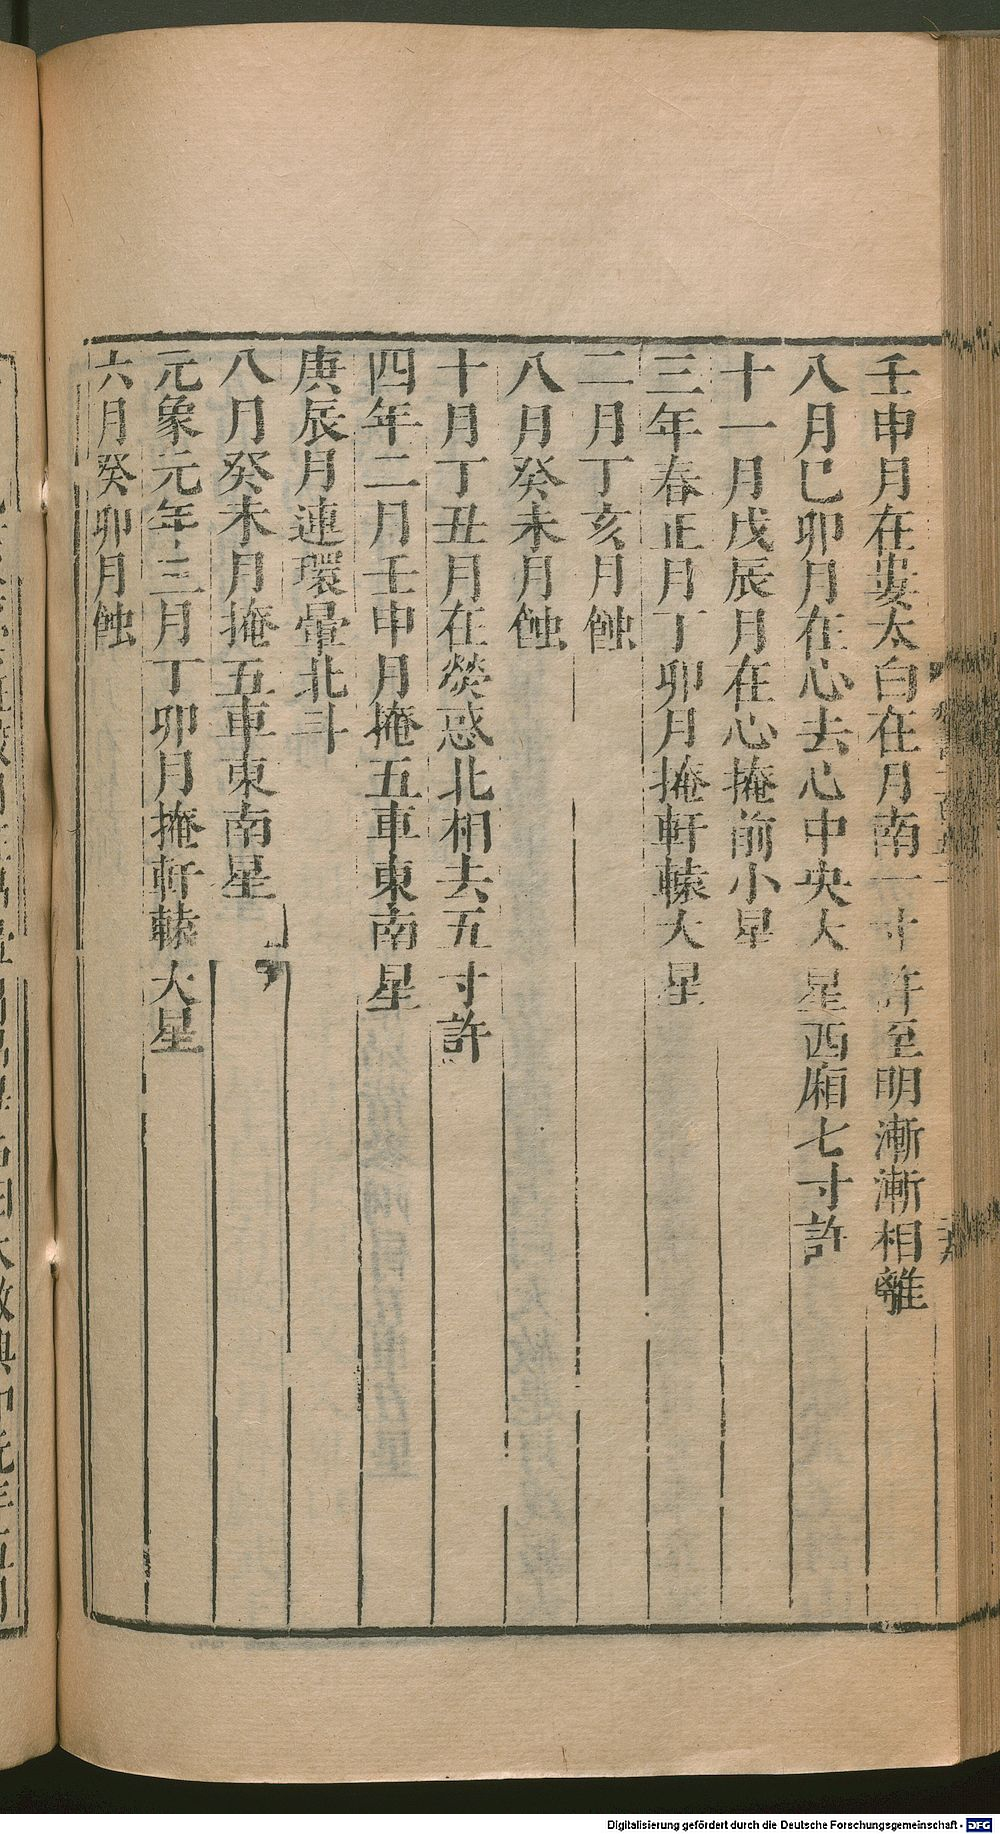 壬申月在婁太白在月南一寸許至明漸漸相離
八月己卯月在心去心中央大星西廂七寸許
十一月戊辰月在心掩前小星
三年春正月丁卯月掩軒轅大星
二月丁亥月蝕
八月癸未月蝕
十月丁丑月在熒惑北相去五寸許
四年二月壬申月掩五車東南星
庚辰月連環暈北斗
八月癸未月掩五車東南星
元象元年三月丁卯月掩軒轅大星
六月癸卯月蝕
Digitalisierung gefördert durch die Deutsche Forschungsgemeinschaft - DFG